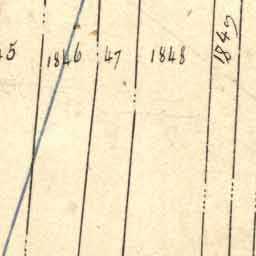 45 1846 47 1848 1849